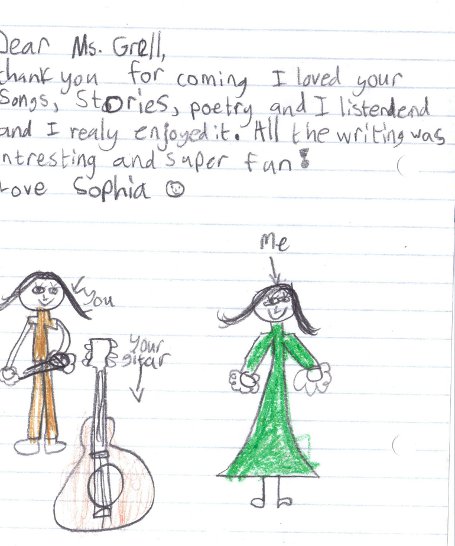 Dear Ms. Grell,
thank you for coming I loved your
Songs, Stories, poetry and I listendend
and I realy enjoyed it. All the writing was
ntresting and super fun!
Love Sophia ☺
Me
you
your
gitar